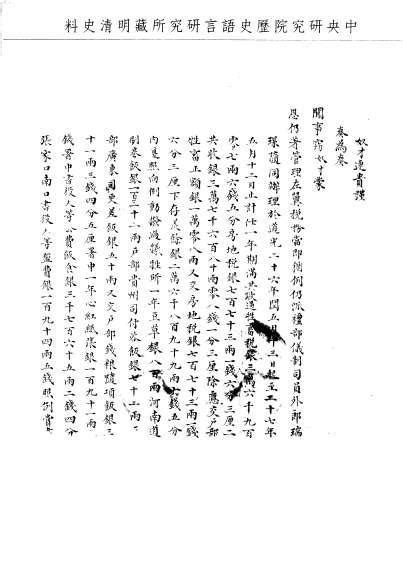 中央研究院歷史語言研究所藏明清史料
奴才連貴謹
奏為奏
聞事竊奴才蒙
恩仍著管理左翼稅務當即循例仍派禮部儀制司員外郎瑞
琛隨同辦理於道光二十六年閏五月十三日起至二十七年
五月十二日止計任一年期滿共徵過牲畜稅銀三萬六千九百
零七兩六錢五分房地稅銀七百七十三兩一錢六分三厘二
共收銀三萬七千六百八十兩零八錢一分三厘除應交戶部
牲畜正額銀一萬零八兩又交房地稅銀七百七十三兩一錢
六分三厘下存盈餘銀二萬六千八百九十九兩六錢五分
內是照向例動撥犧牲所一年豆草銀八百兩河南道
刷卷飯銀一百二十兩戶部貴州司付卷飯銀十兩
部廣東司吏差飯銀五十兩又交戶部錢糧隨項飯銀三
十一兩三錢四分五厘署中一年心紅紙張銀一百九十一兩
錢署中書役人等公費飯食銀三千七百六十五兩二錢四分
張家口南口書役人等盤費銀一百九十四兩五錢照例賞